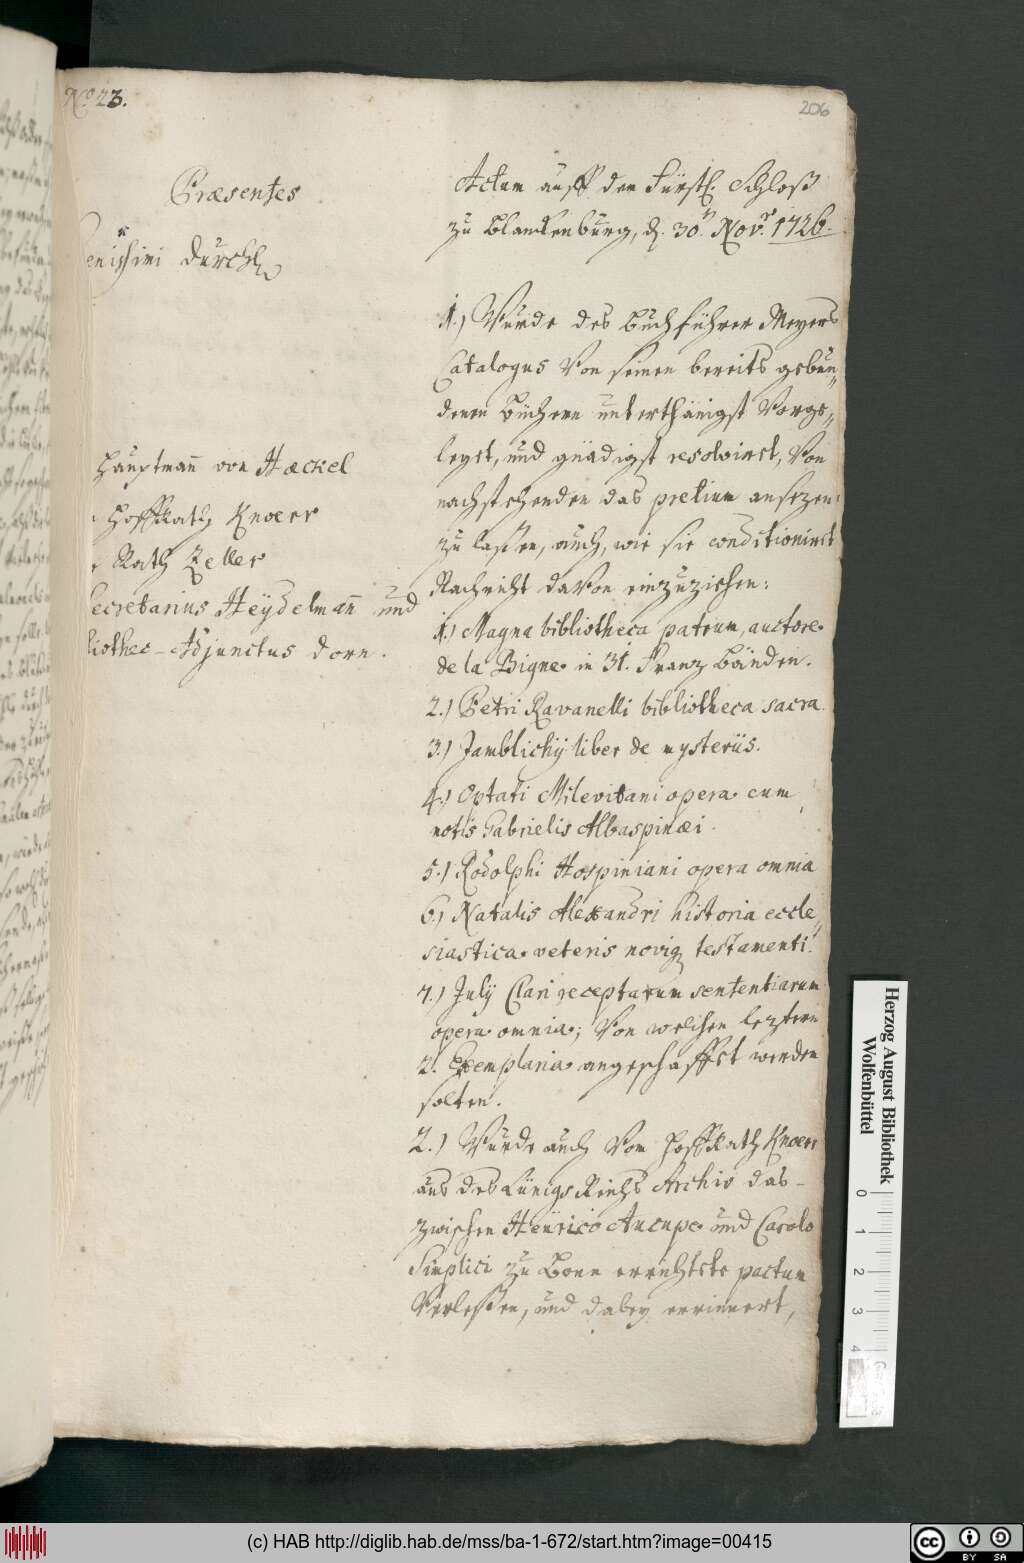 No 23.
206
Præsentes
enissimi Durchl.
Hauptmañ von Hæckel
HoffRath Knoerr
Rath Zeller
Secretarius Heÿdelmañ und
liothec-Adjunctus Dorn.
Actum auff dem Fürstl. Schloß
zu Blanckenburg, d. 30.n Nov.r 1726.
1.) Wurde des Buchführer Meyers
Catalogus Von seinen bereits gebun„
denen Büchern unterthänigst Vorge„
legt, und gnädigst resolviret, Von
nachstehenden das pretium ansezen:
zu laßen, auch, wie sie conditioniret
Nachricht davon einzuziehen:
1.) Magna bibliotheca patrum, auctore
de la Bigne in 31. Franz Bänden.
2.) Petri Ravanelli bibliotheca sacra
3.) Jamblichij liber de mysteriis.
4.) Optati Milevitani opera cum
notis Gabrielis Albaspinæi.
5.) Rodolphi Hospiniani opera omnia
6.) Natalis Alexandri historia eccle„
siastica veteris noviq testamenti.
7.) Julij Clari receptarum sententiarum
opera omnia; Von welchen leztern
2. Exemplaria angeschaffet werden
solten.
2.) Wurde auch Von HoffRath Knoerr
aus des Lünigs Richs Archiv das
zwischen Henrico Aucupe und Carolo
Simplici zu Bonn errichtete pactum
Verleßen, und dabey errinnert,
Herzog August Bibliothek
Wolfenbüttel
0 1 2 3 4
(c) HAB http://diglib.hab.de/mss/ba-1-672/start.htm?image=00415
cc BY SA